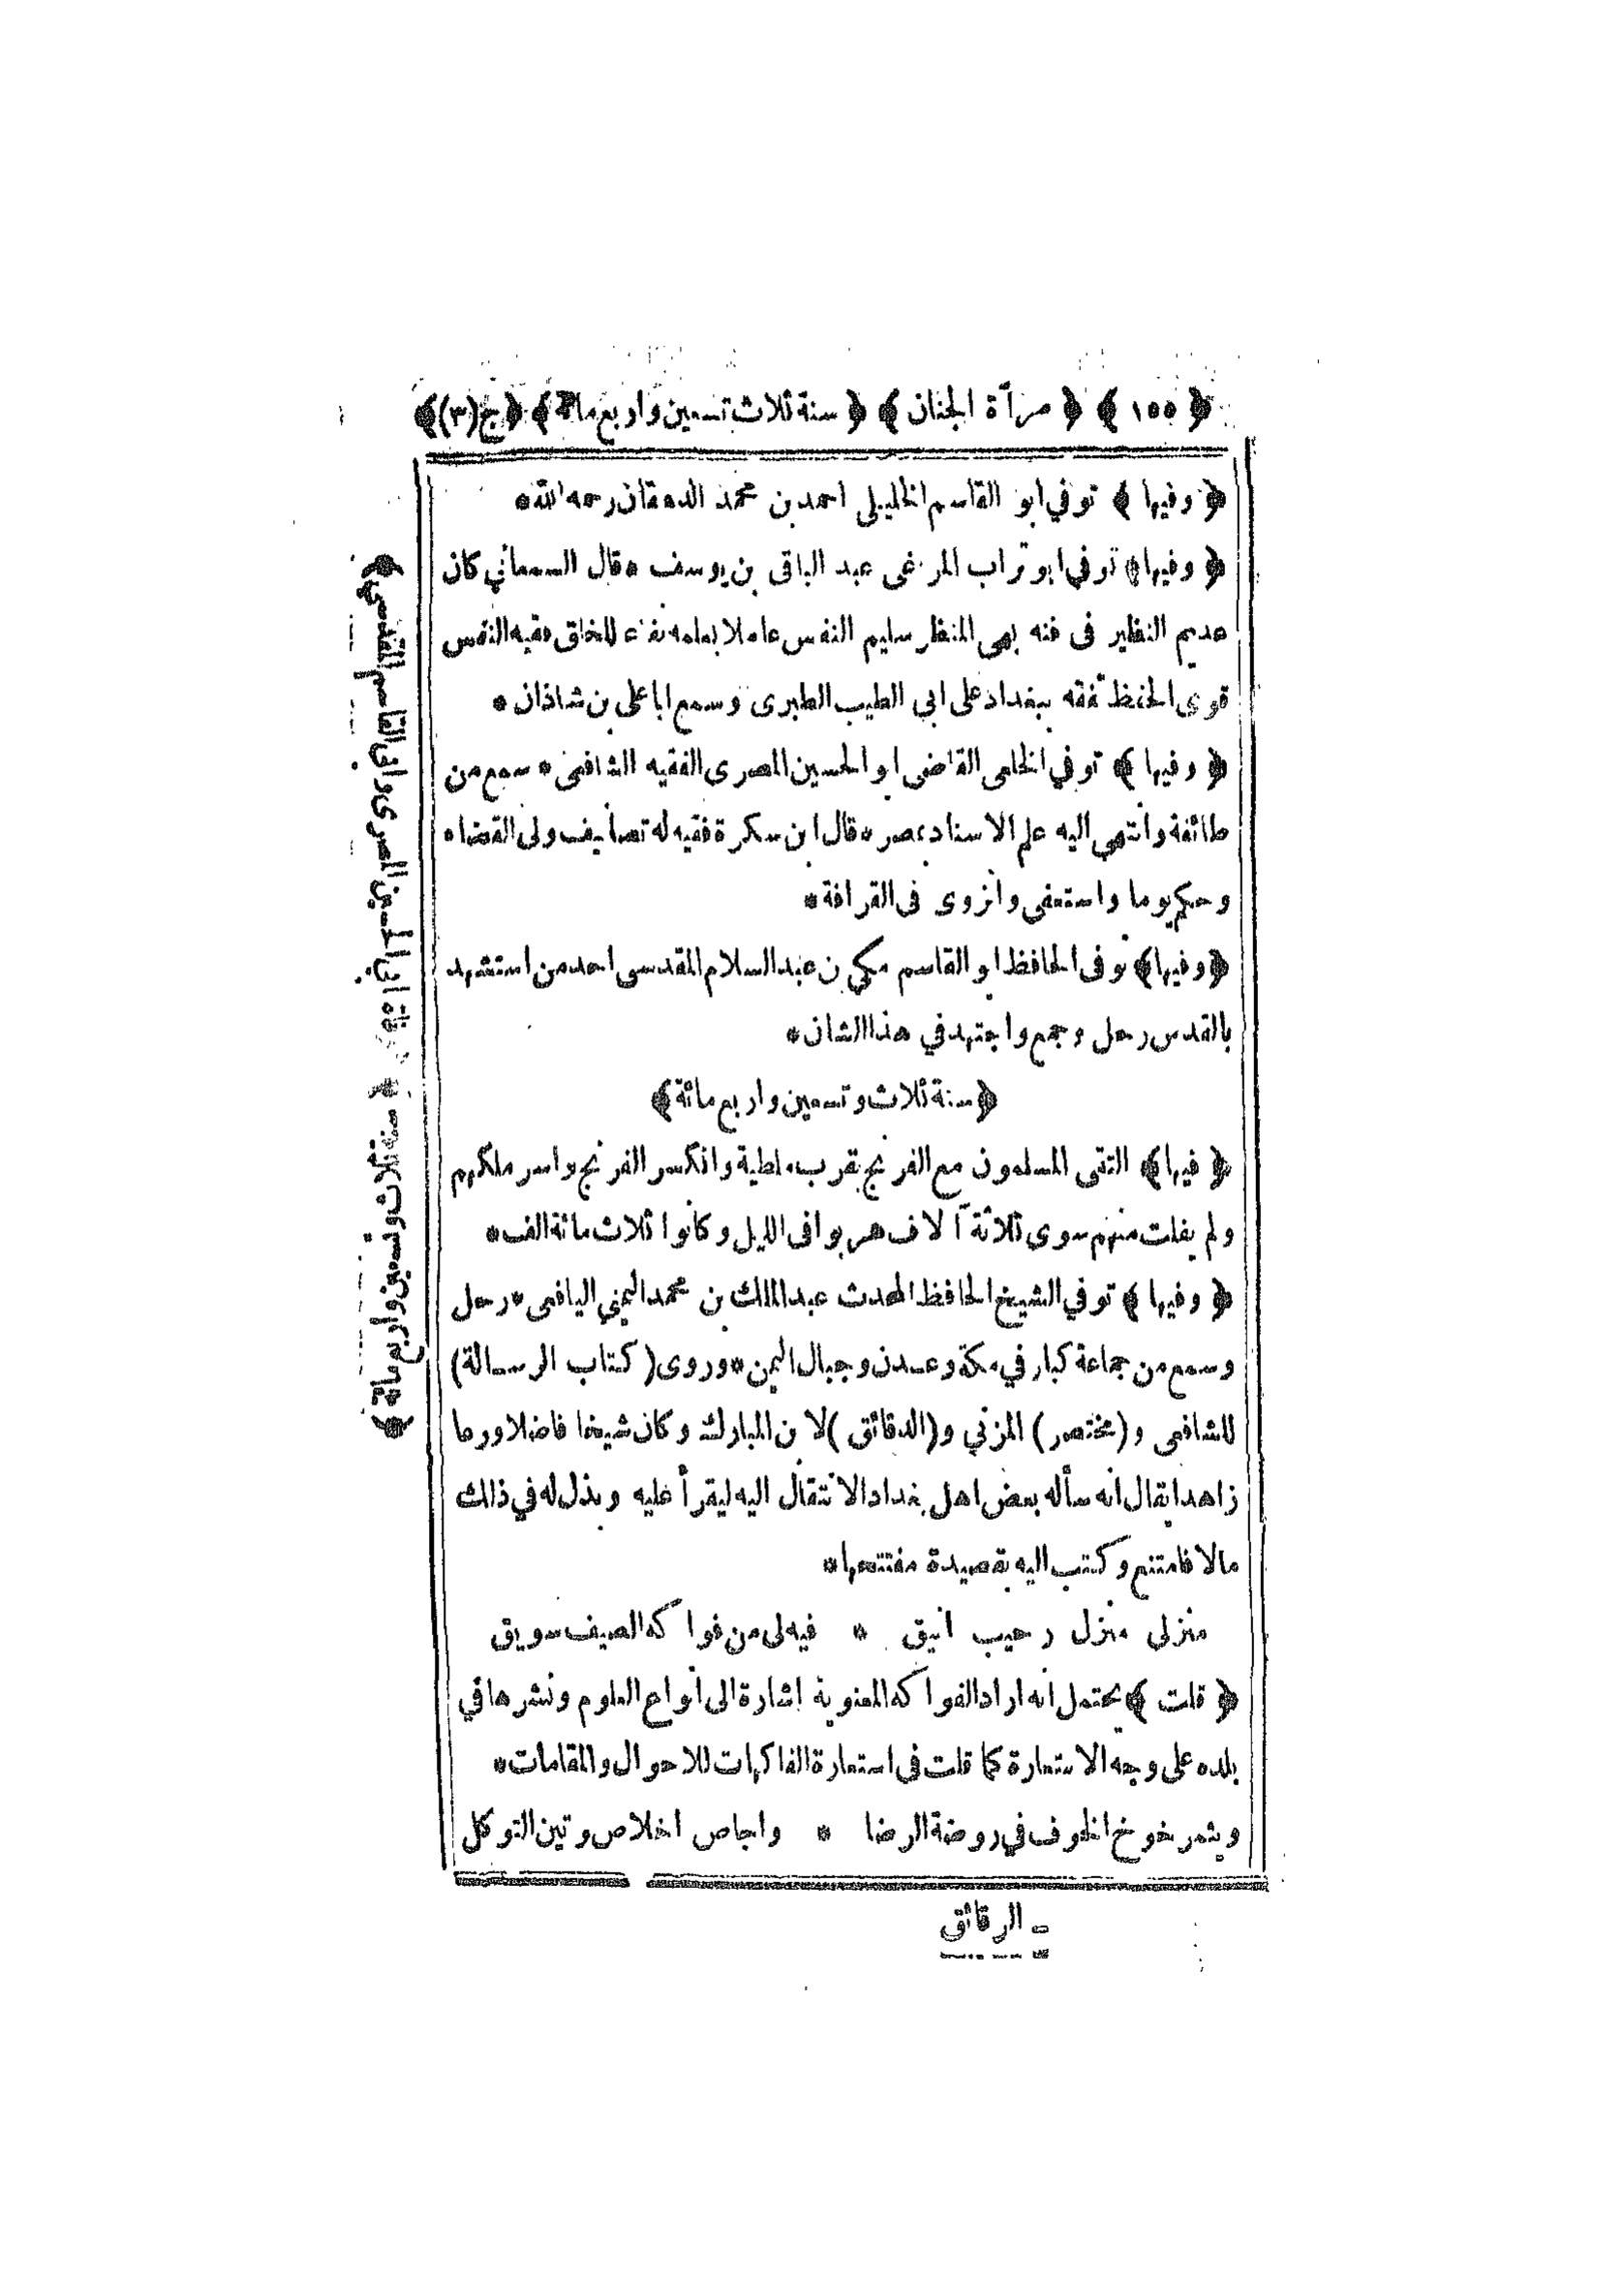 ﴿ ١٥٥ ﴾ ﴿ مرآة الجنان ﴾ ﴿ سنة ثلاث تسعين واربع مائة ﴾ ﴿ ج (٣) ﴾
﴿ وفيها ﴾ توفي ابو القاسم الخليلى احمد بن محمد الدهقان رحمه الله *
﴿ وفيها ﴾ توفي ابو تراب المراغى عبد الباقى بن يوسف * قال السمعاني كان
عديم النظير فى فنه بهى المنظر سليم النفس عاملا بعلمه نفاع للخلق فقيه النفس
قوى الحفظ تفقه ببغداد على ابي الطيب الطبرى وسمع ابا على بن شاذان *
﴿ وفيها ﴾ توفي الخلعى القاضى ابو الحسين المصرى الفقيه الشافعى * سمع من
طائفة وانتهى اليه علم الاسناد بمصر * قال ابن سكرة فقيه له تصانيف ولى القضاء
وحكم يوما واستعفى وانزوى فى القرافة *
﴿ وفيها ﴾ توفى الحافظ ابو القاسم مكي بن عبد السلام المقدسى احد من استشهد
بالقدس رحل وجمع واجتهد في هذا الشان *
﴿ سنة ثلاث وتسعين واربع مائة ﴾
﴿ فيها ﴾ التقى المسلمون مع الفرنج بقرب ملطية وانكسر الفرنج واسر ملكهم
ولم يفلت منهم سوى ثلاثة آلاف هربوا فى الليل وكانوا ثلاث مائة الف *
﴿ وفيها ﴾ توفي الشيخ الحافظ المحدث عبد الملك بن محمد اليمني اليافعى * رحل
وسمع من جماعة كبار في مكة وعدن وجبال اليمن * وروى ( كتاب الرسالة )
للشافعى و (مختصر) المزني و (الدقائق) لابن المبارك وكان شيخا فاضلا ورعا
زاهدا يقال انه سأله بعض اهل بغداد الانتقال اليه ليقرأ عليه وبذل له في ذلك
مالا فامتنع وكتب اليه بقصيدة مفتتحها *
منزلى منزل رحيب انيق * فيه لى من فواكه الصيف سويق
﴿ قلت ﴾ يحتمل انه اراد الفواكه المعنوية اشارة الى انواع العلوم ونشرها في
بلده على وجه الاستعارة كما قلت فى استعارة الفاكهات للاحوال والمقامات *
ويثمر خوخ الخوف في روضة الرضا * واجاص اخلاص وتين التوكل
الرقائق
المصرى وابى القاسم المقدسى ﴾
﴿ سنة ثلاث وتسعين واربع مائة ﴾